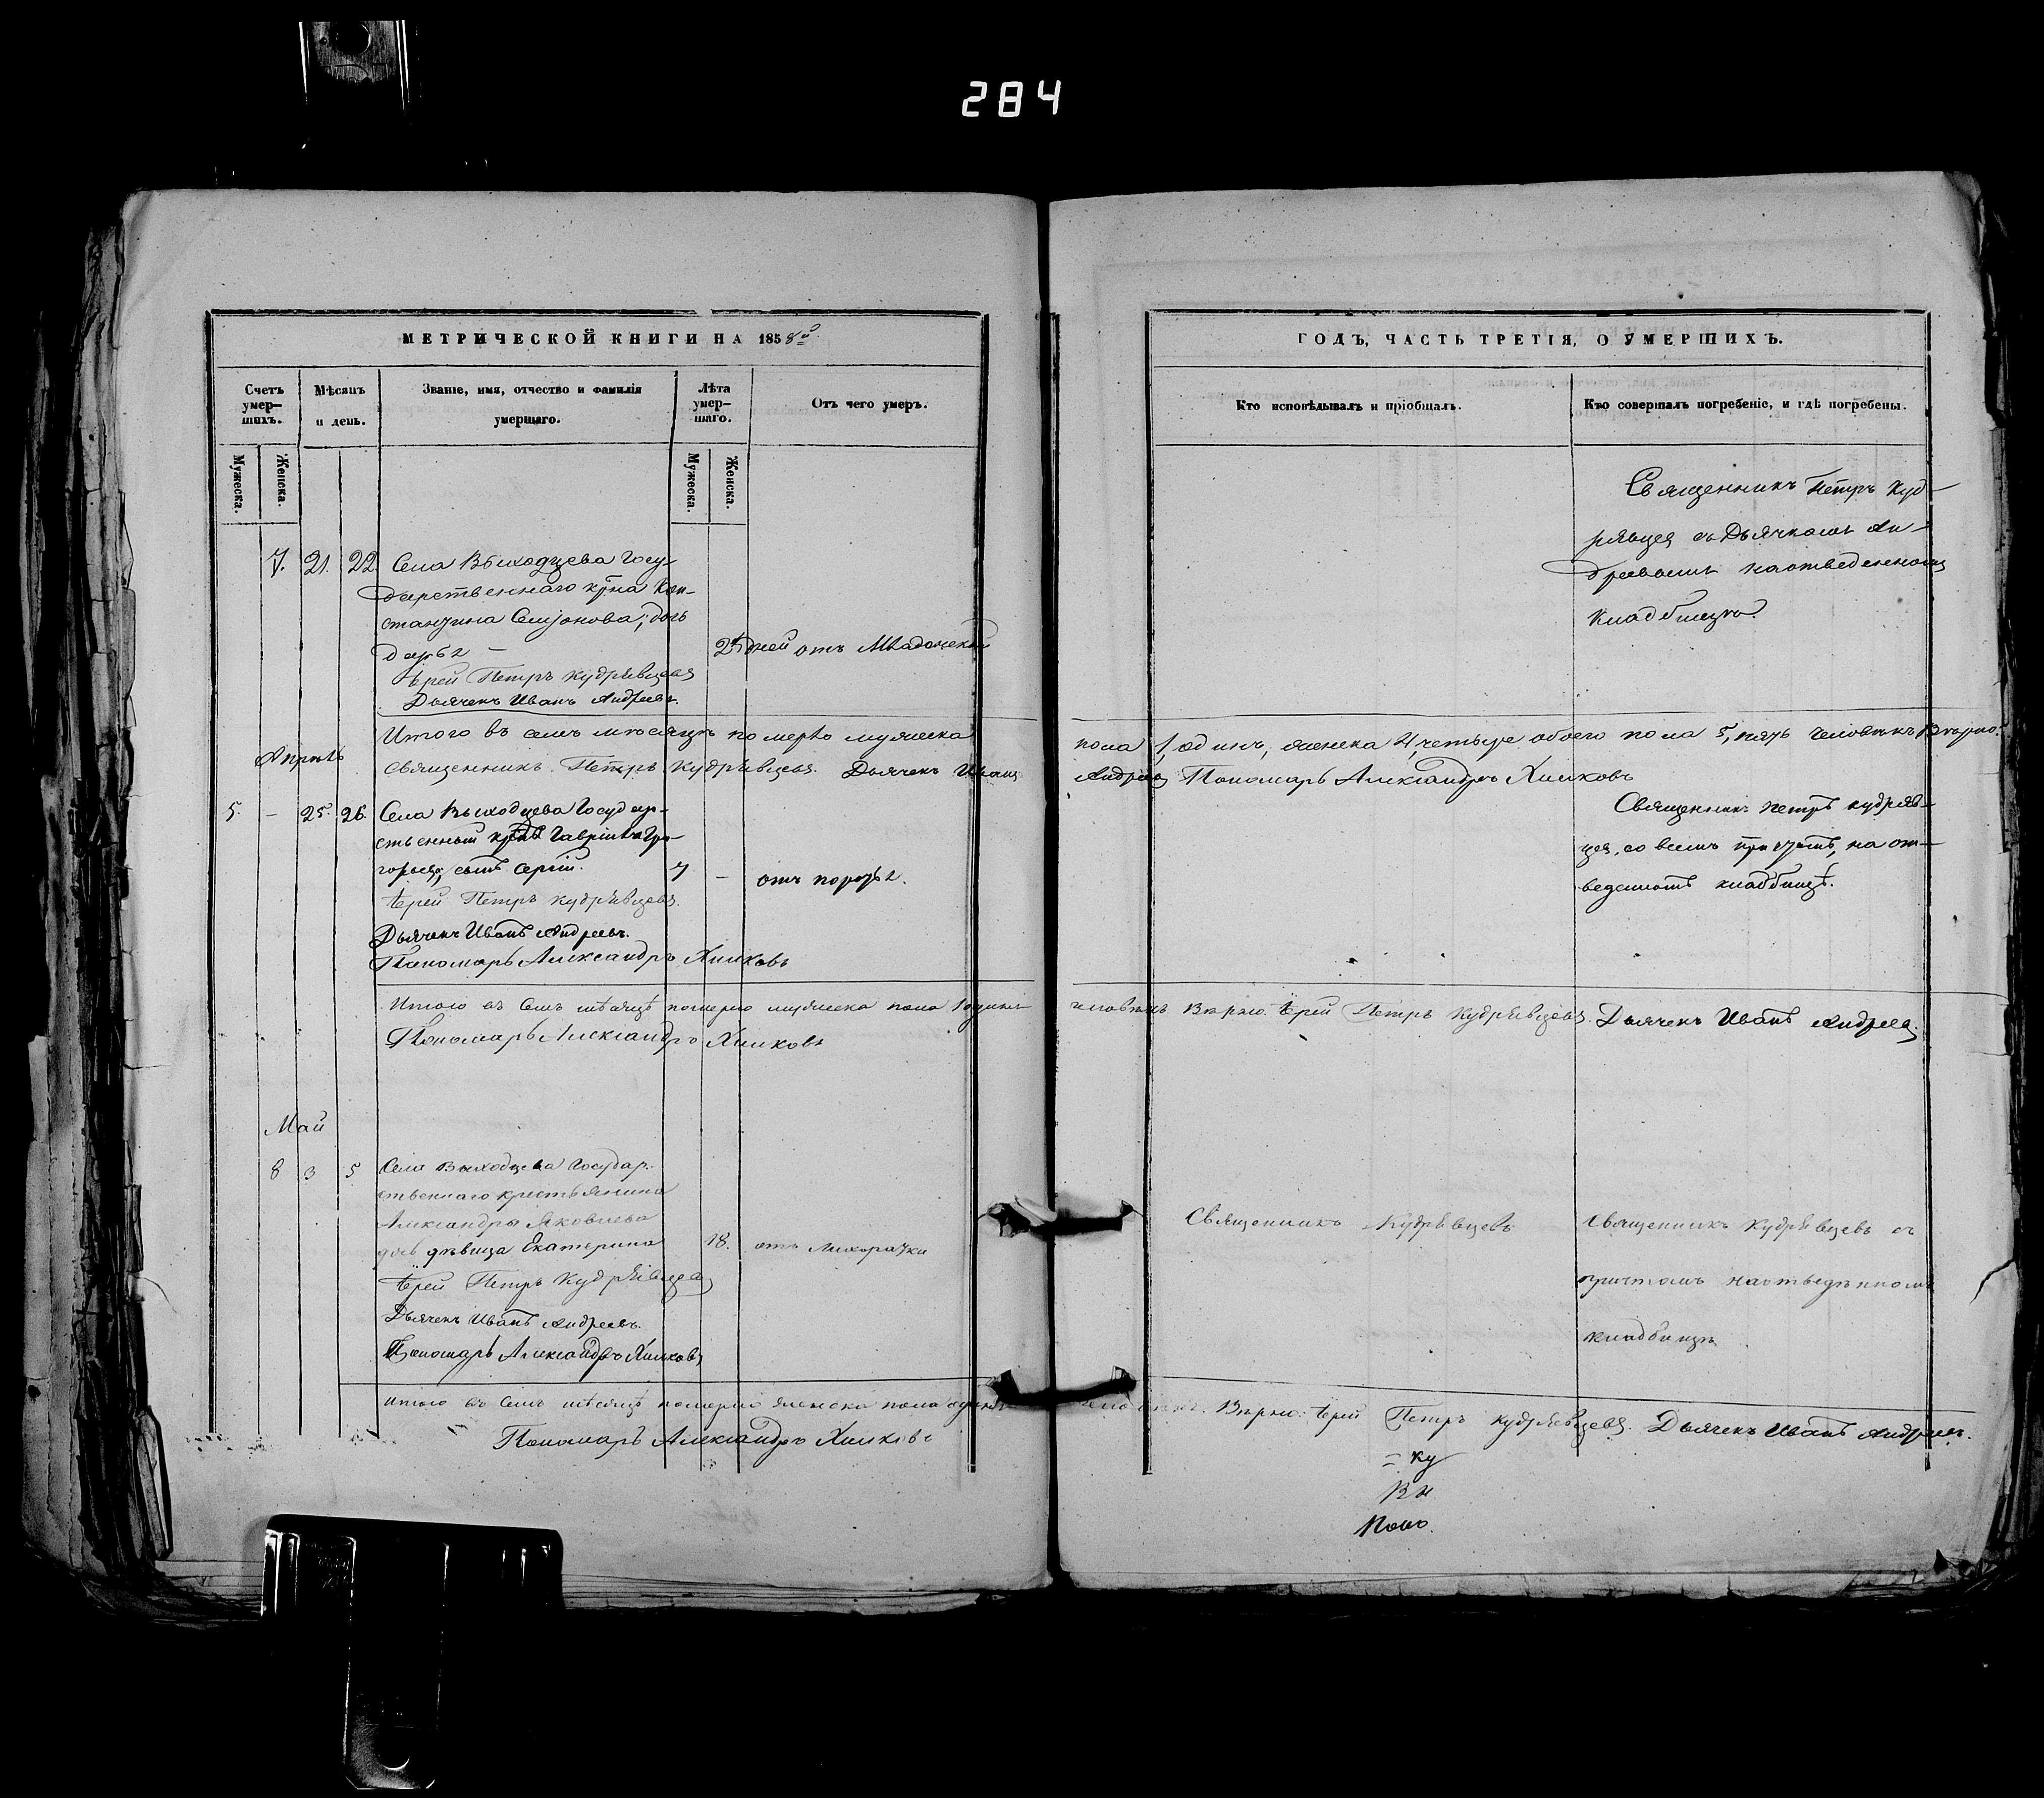 284
МЕТРИЧЕСКОЙ КНИГИ НА 1858й
Счетъ умер-шихъ.
Мужеска.
Женска.
Мѣсяцъ и день.
Званіе, имя, отчество и фамилія умершаго.
Лѣта умер-шаго.
Мужеска.
Женска.
Отъ чего умеръ.
7. 21. 22 Села Выходцева Госу-
дарственнаго
дочь
дней отъ
Іерей Петръ Кудрявцевъ
Дьячекъ Иванъ Андреевъ.
Итого въ семъ мѣсяцѣ померло мужеска
Апрѣль
Священникъ Петръ Кудрявцевъ. Дьячекъ Иванъ
5. – 25. 26. Села Выходцева Государ-
ственный
сынъ Сергій. 7 –
Іерей Петръ Кудрявцевъ.
Дьячекъ Иванъ Андреевъ.
Пономарь Александръ Хилковъ
Итого въ семъ мѣсяцѣ померло мужеска пола 1 одинъ
Пономарь Александръ Хилковъ
Май
8 3 5 Села Выходцева Государ-
ственнаго крестьянина
Александра Яковлева
дочь дѣвица Екатерина 18. отъ лихорадки
Іерей Петръ Кудрявцевъ
Дьячекъ Иванъ Андреевъ.
Пономарь Александръ Хилковъ
Итого въ семъ мѣсяцѣ померло женска пола
Пономарь Александръ Хилковъ
ГОДЪ, ЧАСТЬ ТРЕТІЯ, О УМЕРШИХЪ.
Кто исповѣдывалъ и пріобщалъ.
Кто совершалъ погребеніе, и гдѣ погребены.
Священникъ Петръ Куд-
рявцев съ Дьячкомъ Ан-
дреевымъ на отведенномъ
кладбищѣ.
пола 1, одинъ, женска 4, четыре обоего пола 5, пять человѣкъ Вѣрно:
Андреев Пономарь Александръ Хилковъ
Священникъ Петръ Кудряв-
цев, со всемъ причтомъ, на от-
веденномъ кладбищѣ.
человѣкъ Вѣрно: Іерей Петръ Кудрявцевъ. Дьячекъ Иванъ Андреев.
Священникъ Кудрявцевъ
Священникъ Кудрявцевъ съ
причтомъ на отведенномъ
кладбищѣ
Вѣрно: Іерей Петръ Кудрявцевъ. Дьячекъ Иванъ Андреевъ.
= Ку
Поно.